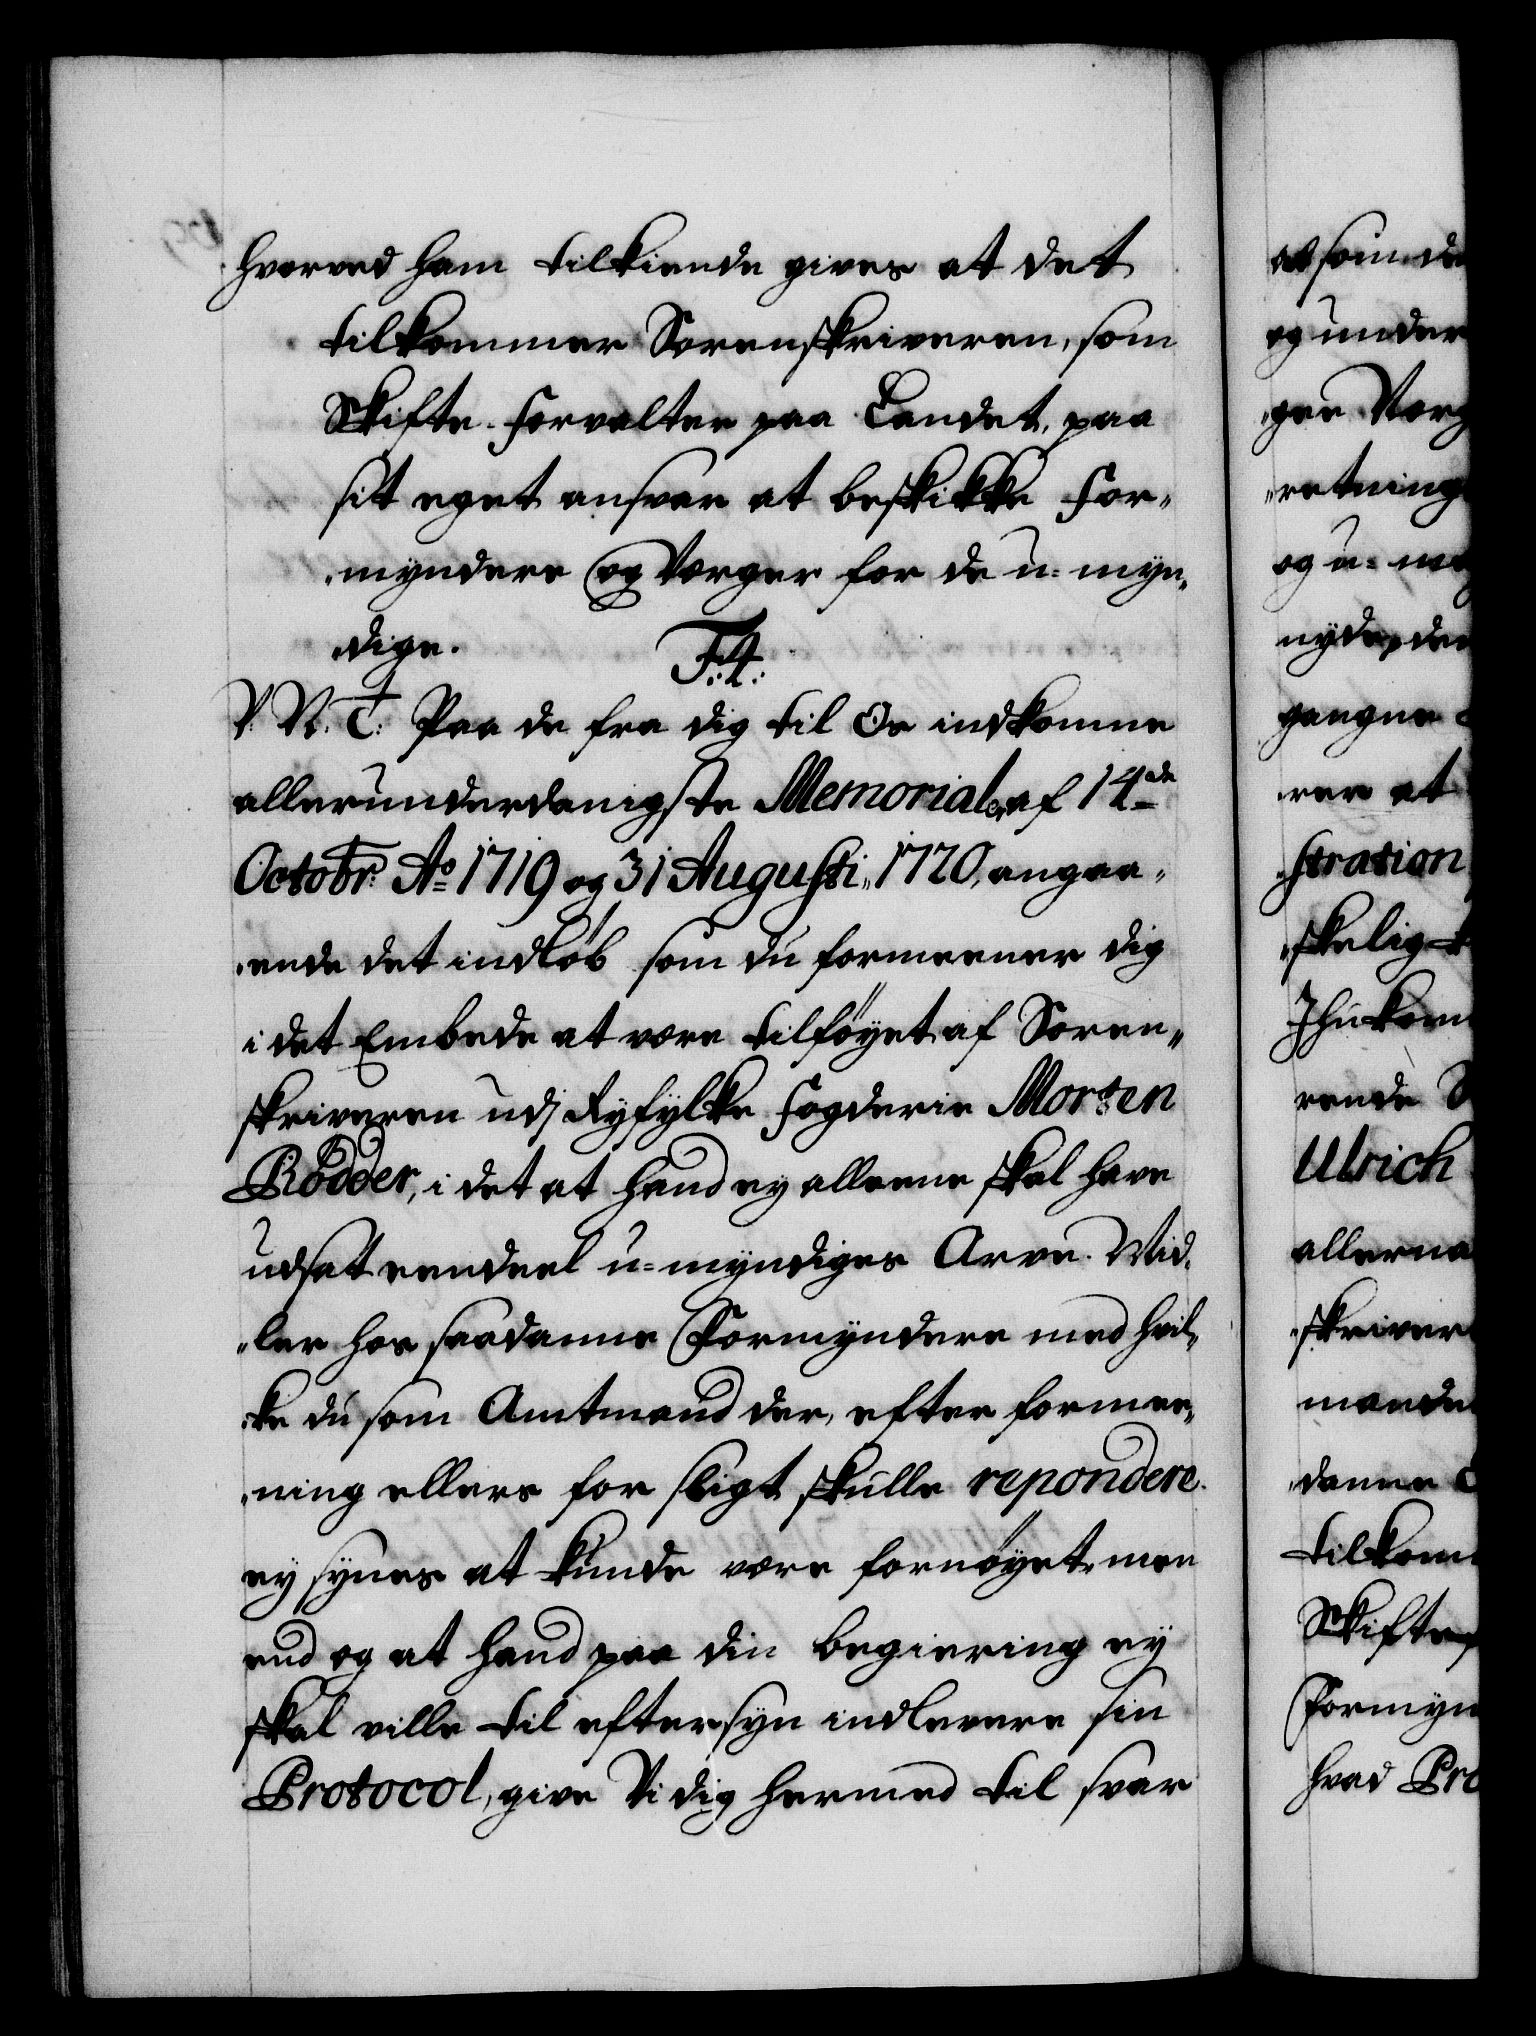 hvorved ham tilkiende gives at det
tilkommer Sorenskriveren, som
Skifte-forvalter paa Landet, paa
sit eget ansvar at beskikke For„
„myndere og Værger for de u-myn„
„dige.
F: 4:
V. N. T. Paa de fra dig til Os indkomne
allerunderdanigste Memorialer af 14de
Octobr: Ao 1719 og 31 Augusti, 1720, angaa„
„ende det indløb som du formeener dig
i det Embede at være tilføyet af Soren„
skriveren udj Ryfylke Fogderie Morten
Rödder, i det at hand ey alleene skal have
udsat eendeel u-myndiges Arve-Mid„
„ler hos saadanne Formyndere med hvil„
„ke du som Amtmand der, efter formee„
„ning ellers for sligt skulle repondere.
ey synes at kunde være fornøyet, men
end og at hand paa din begiering ey
skal ville til eftersyn indlevere sin
Protocol, give Vi dig hermed til svar
at som de
og under
„gen Værg
„retning
og u-my
nyde, den
gangne
„rer at
„stration
„skelig
Ihukom
„rende S
Ulrich
allerna
„skriver
mande
„danne
tilkom
Skifte
Formyn
hvad Pro